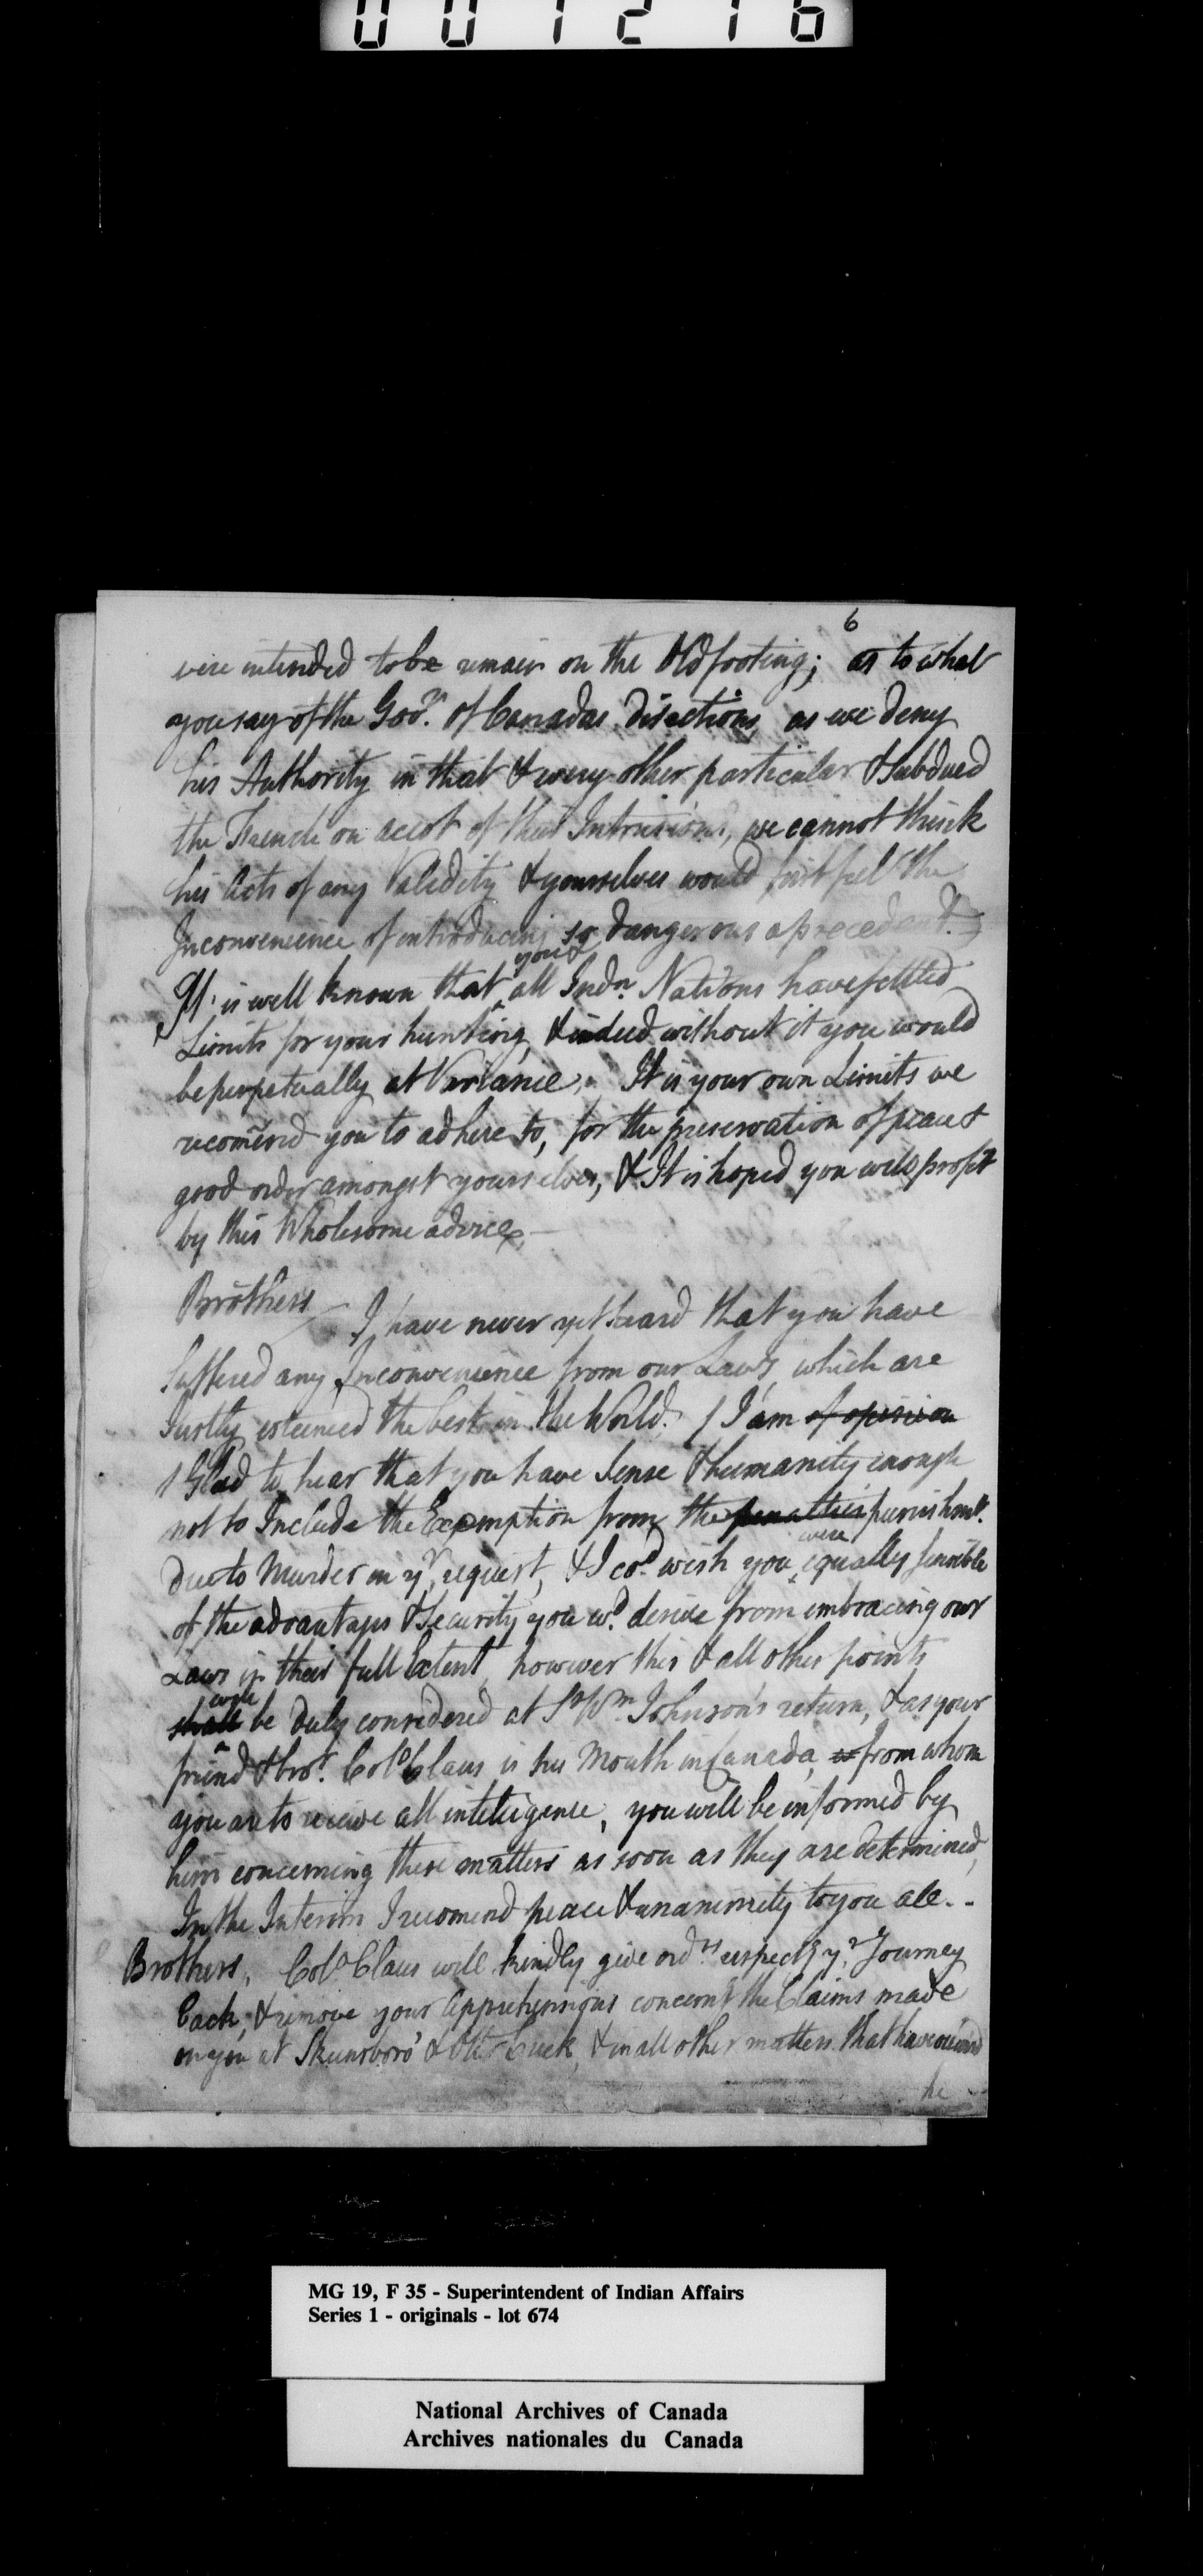 001216
6
were intended to be remain on the Old footing; as to what
you say of the Govr. of Canadas directions as we deny
his Authority in that & every other particular & Subdued
the French on accot of their Intrusions, we cannot think
his Acts of any Validity & yourselves would first feel the
Inconvenience of introducing so dangerous a precedent.
you &
It is well known that all Indn. Nations have settled
Limits for your hunting, & indeed without it you would
be perpetually at Variance, It is your own Limits we
recomend you to adhere to, for the preservation of peace &
good order amongst yourselves, & It is hoped you will profit
by this Wholesome advice,
Brothers
I have never yet heard that you have
Suffered any Inconvenience from our Laws which are
Justly esteemed the best in the World. I am of opinion
Glad to hear that you have Sense & humanity enough
not to Include the Exemption from the penalties punishmt.
were
due to Murder in yr. request, & I cod. wish you equally sensible
of the advantages & Security you wd. derive from embracing our
Laws in their full Extent, however this & all other points
will
shall be duly considered at Sr Wm Johnson's return, & as your
friend & bror. Colo Claus is his Mouth in Canada, from whom
you are to receive all intelligence, you will be informed by
him concerning these matters as soon as they are determined,
In the Interim I recomend peace & unanimity to you all.
Brothers, Colo Claus will kindly give ordrs respectg yr. Journey
back, & remove your Apprehensions concerng the Claims made
on you at Skeensboro' & Otter Creek, & in all other matters that have occurred
he
MG 19, F 35 - Superintendent of Indian Affairs
Series 1 - originals - lot 674
National Archives of Canada
Archives nationales du Canada